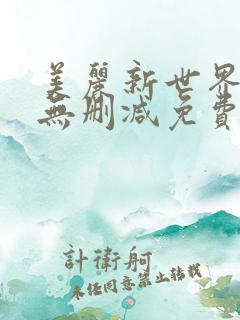 美麗新世界
無刪減免費
計衛舸
未经同意禁止转载